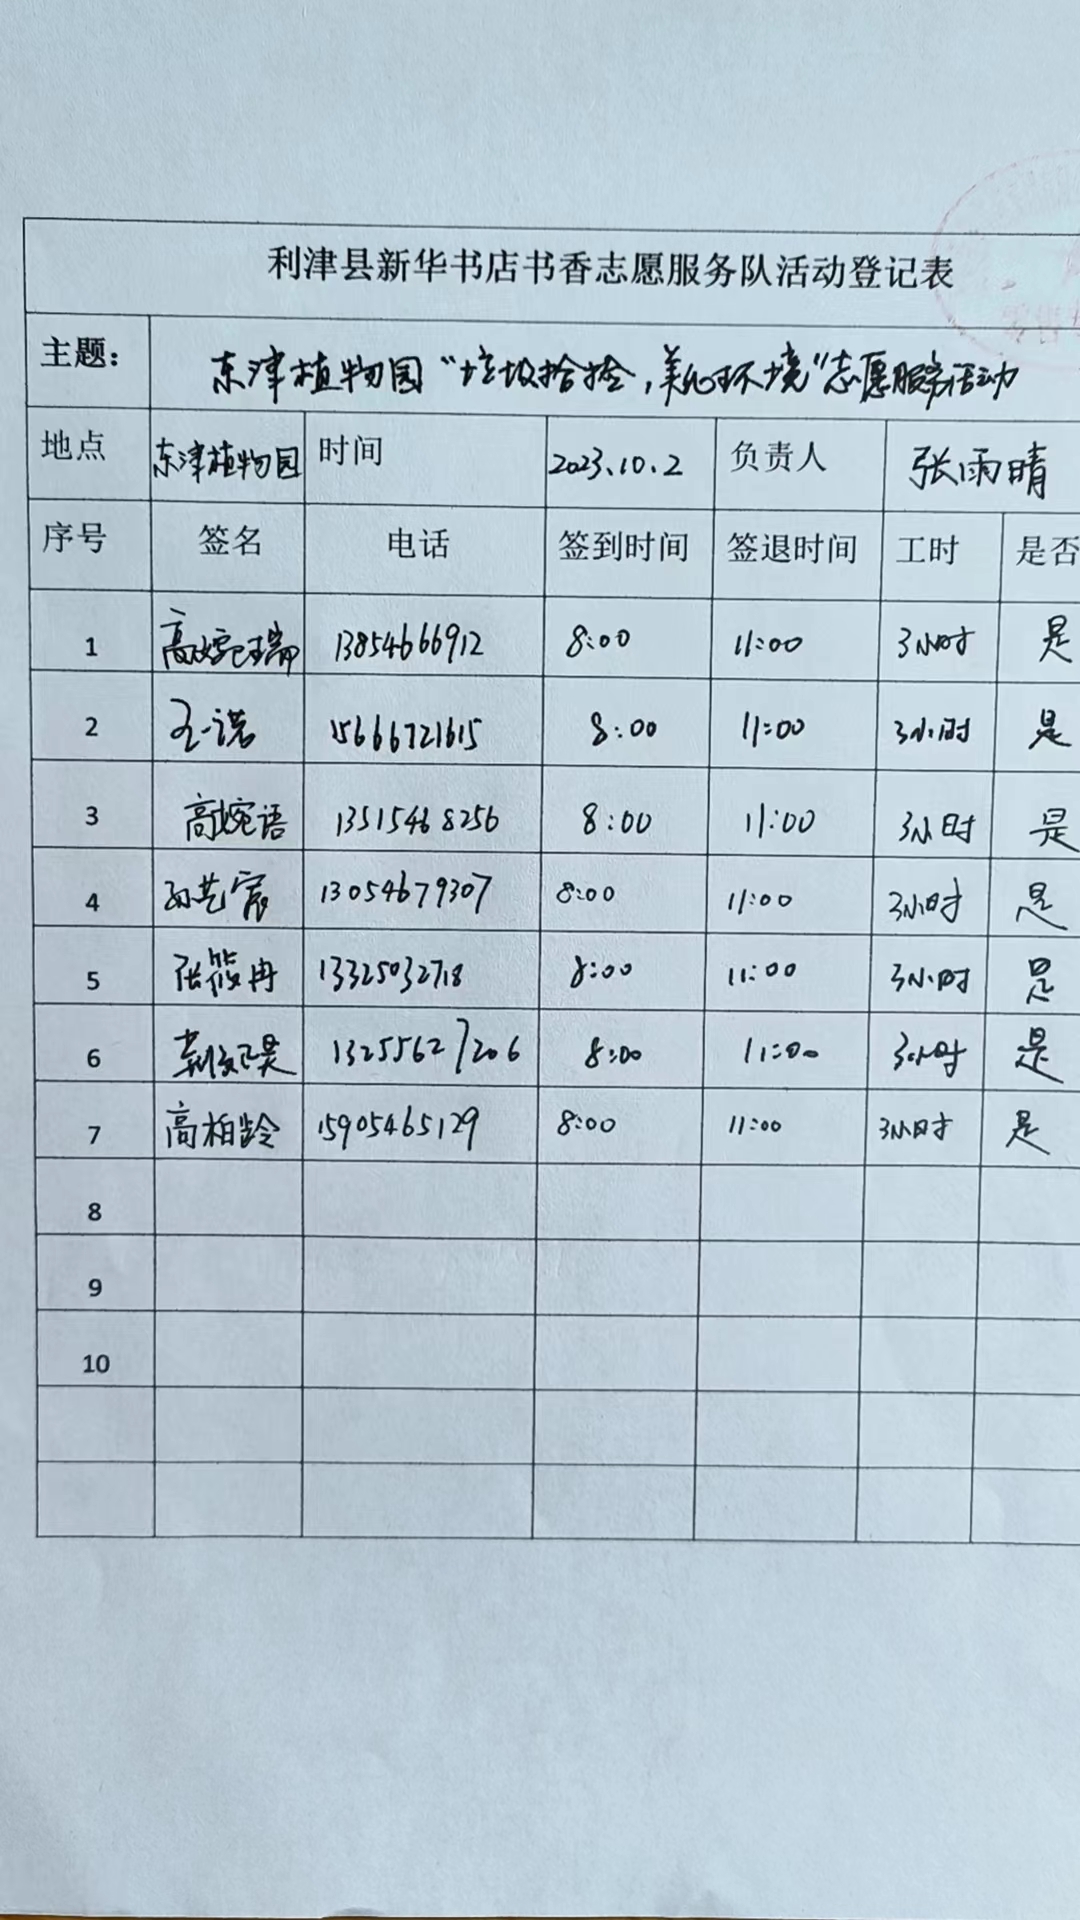 利津县新华书店书香志愿服务队活动登记表
主题： 东津植物园“垃圾捡拾，美化环境”志愿服务活动
地点 东津植物园 时间 2023.10.2 负责人 张雨晴
序号 签名 电话 签到时间 签退时间 工时 是否
1 13854666912 8:00 11:00 3小时 是
2 王一诺 15666721615 8:00 11:00 3小时 是
3 高婉语 13515468256 8:00 11:00 3小时 是
4 孙艺宸 13054679307 8:00 11:00 3小时 是
5 张筱冉 13325032718 8:00 11:00 3小时 是
6 13255627206 8:00 11:00 3小时 是
7 高柏龄 15905465129 8:00 11:00 3小时 是
8
9
10